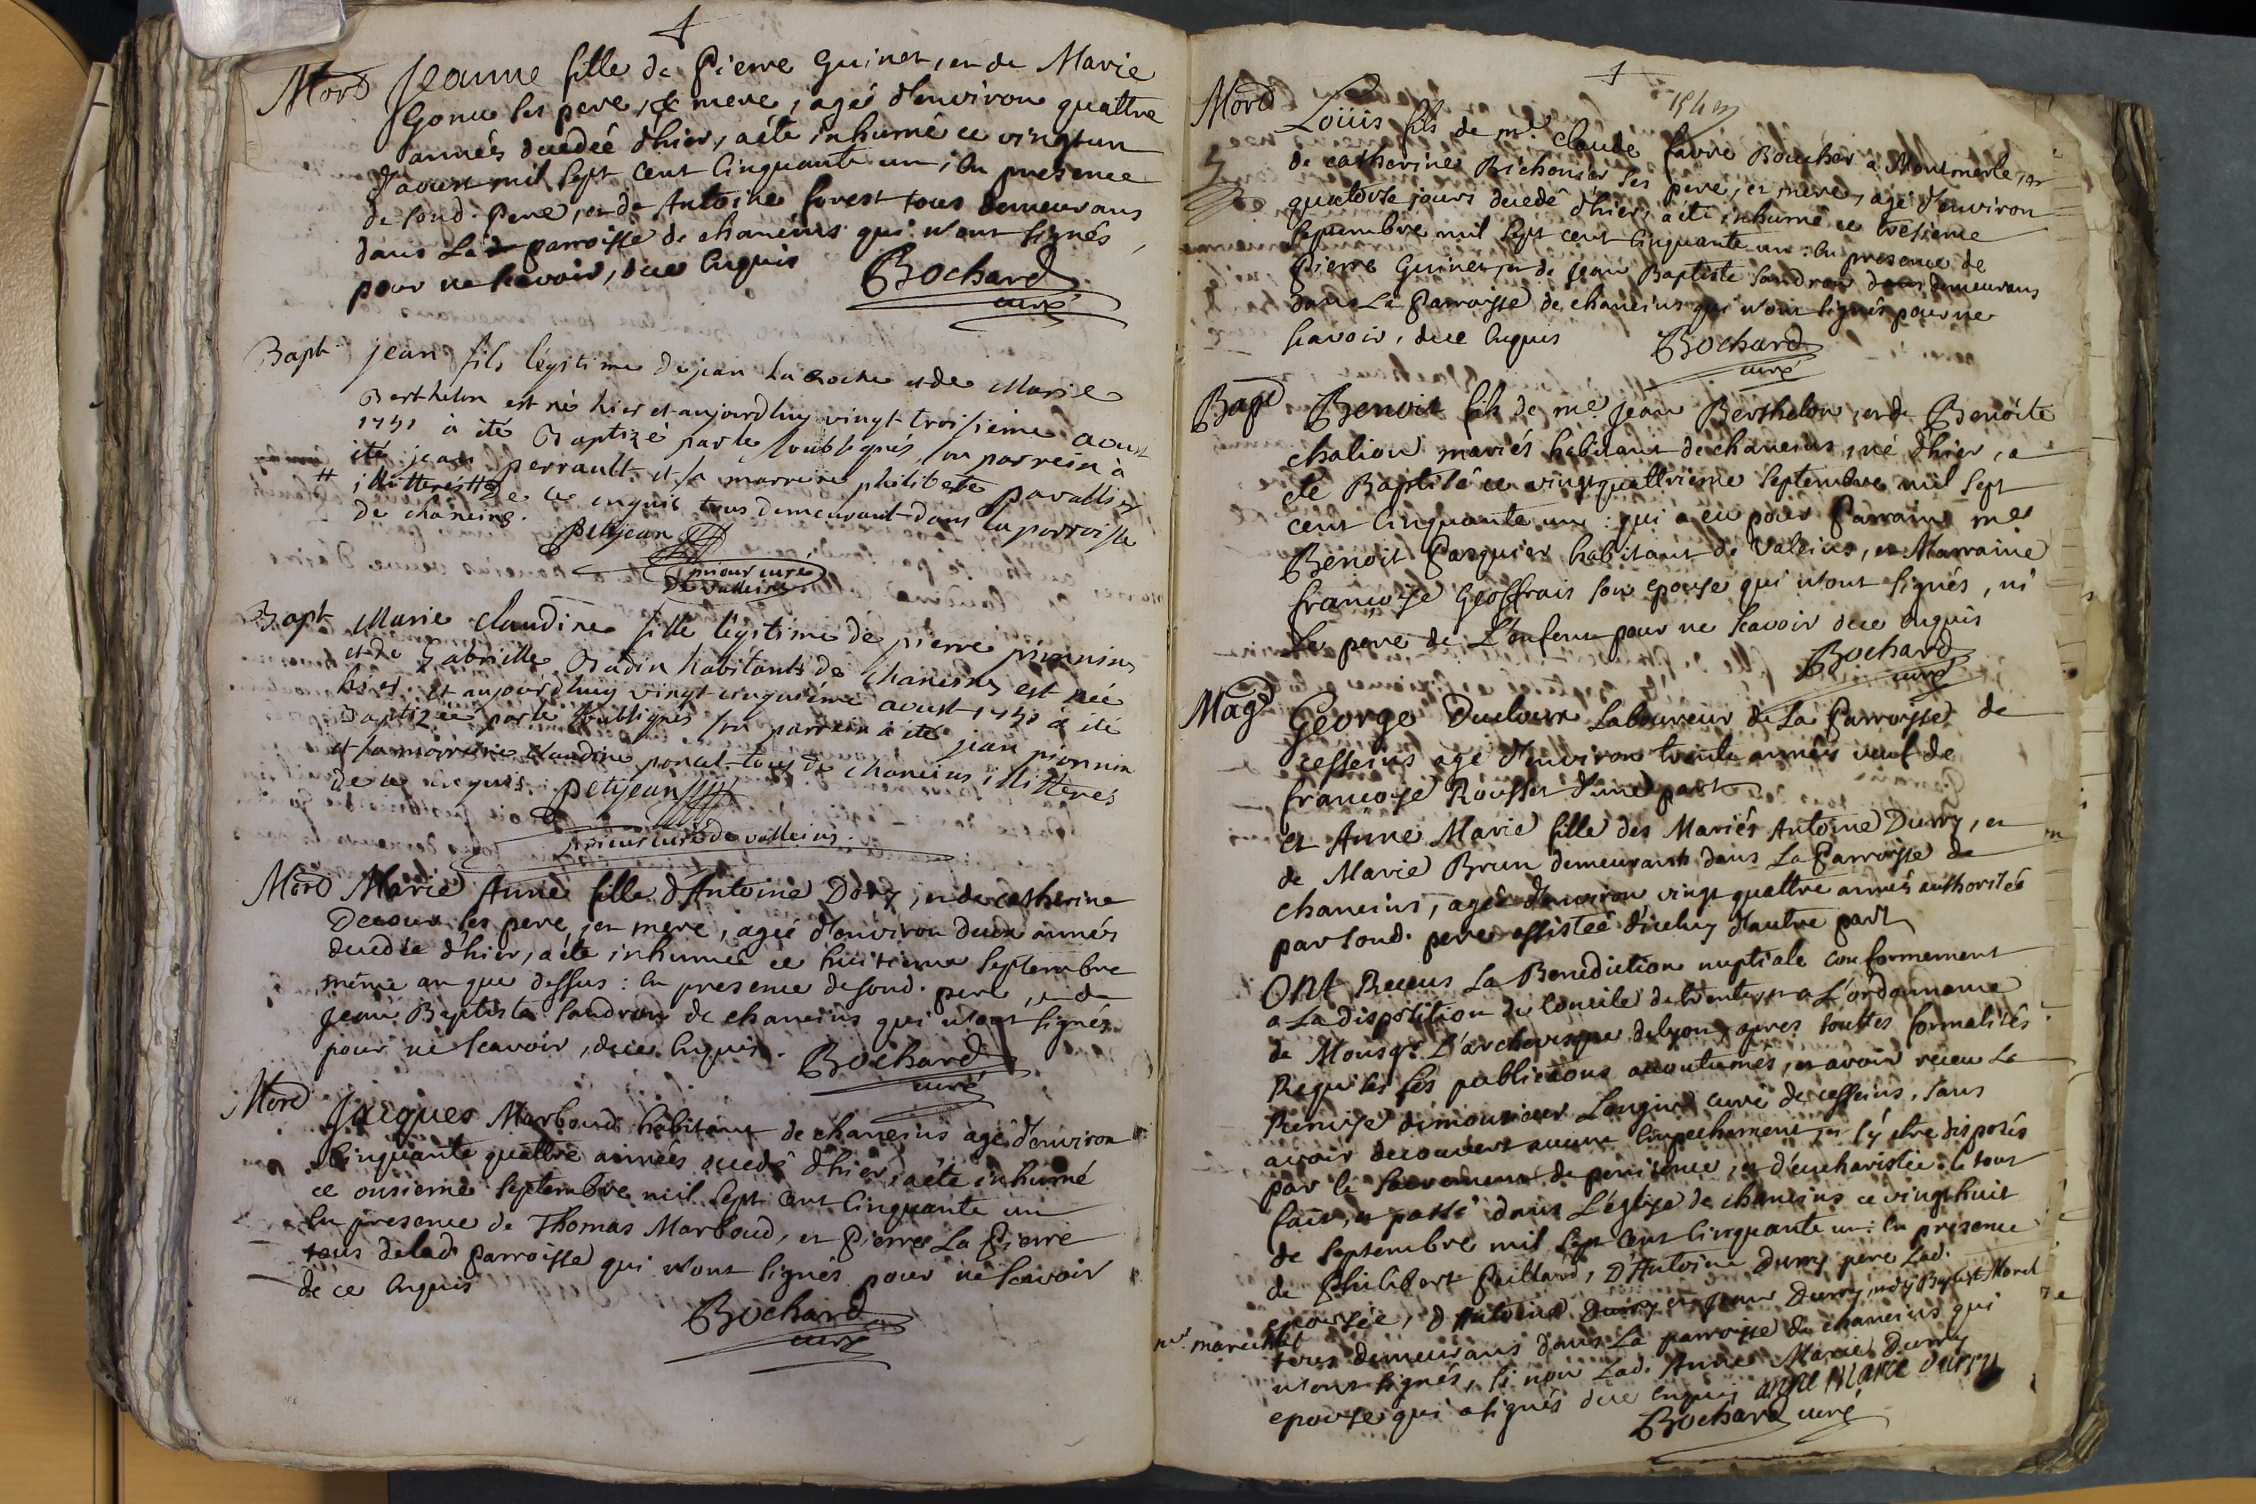 Mord Jeanne fille de Pierre Guinet, et de Marie
Gonu ses pere, & mere, agé d'environ quattre
années decedeé d'hier, a été inhumé ce vingtun
d'aoust mil sept cent cinquante un, en presence
de sond. Pere, et de Antoine forest tous demeurans
dans Lad parroisse de chaneins qui n'ont signés,
pour ne scavoir, de ce enquis Bochard
curé
Bapt. jean fils légitime de jean La Roche et de Marie
Berthelon est né hier et aujourdhuy vingt-troisieme aoust
1751 a été Baptizé par le soubsignés, son parrein a
été jean perrault et sa marreine philiberte pavallier
# illitterés # de ce enquis tous demeurant dans la parroisse
de chaneins. petijean
prieur curé
de valleins
Bapt Marie Claudine fille légitime de pierre pionnin
et de Gabrielle Badin habitants de chaneins est née
hier et aujourdhuy vingt cinquiéme aoust 1751 a été
Baptizée par le soubsignés son parrein a été jean pionnin
et sa marreine claudine poncet tous de chaneins illitterés
de ce enquis. petijean
prieur curé de valleins.
Mord Marie Anne fille d'Antoine Dory, et de catherine
Decour ses pere, et mere, agée d'environ deux années
decedée d'hier, a été inhumée ce huitieme Septembre
même an que dessus: en presence de sond. pere, et de
Jean Baptiste Sandron de chaneins qui n'ont signés
pour ne scavoir, de ce enquis. Bochard
curé
Mord Jacques Marboud habitant de chaneins agé d'environ
cinquante quattre années decedé d'hier, a été inhumé
ce onsieme Septembre mil sept cent cinquante un
en presence de Thomas Marboud, et Pierre La Pierre
tous de lad. Parroisse qui n'ont signés pour ne scavoir
de ce enquis
Bochard
curé
Mord Loüis fils de me. claude favre Boucher a Montmerle, et
de catherine Richonier ses pere, et mere, agé d'environ
quatorse jours decedé d'hier, a été inhumé ce tresieme
Septembre mil sept cent cinquante un: en presence de
Pierre Guinet, et de Jean Baptiste Sandron demeurans
dans La Parroisse de chaneins qui n'ont signés pour ne
scavoir, de ce enquis Bochard
curé
Bapt Benoit fils de me Jean Berthelon, et de Benoite
chalion mariés habitant de chaneins, né d'hier, a
été Baptisé ce vingt quattrieme Septembre mil sept
cent cinquante un: qui a eu pour Parrain me
Benoit Pasquier habitant de Valeins, et Marraine
françoise Geoffrais son epouse qui n'ont signés, ni
Le pere de L'enfent pour ne scavoir de ce enquis
Bochard
curé
Mage George Ducloux Laboureur de La Parroisse de
cesseins agé d'environ trente années veuf de
françoise Rousset d'une part
et Anne Marie fille des Mariés Antoine Durry, et
de Marie Brun demeurants dans La Parroisse de
chaneins, agée d'environ vingt quattre années authorisée
par sond. pere assistée d'iceluy d'autre part
ONt Receus La Benediction nuptiale conformement
a La disposition du concile de trente, et a L'ordonnance
de Monsgr. L'archevesque de lyon, apres touttes formalités
Requises les publications accoutumés, et avoir receu La
Remise de monsieur Longin curé de cesseins, sans
avoir decouvert aucun empechement, et s'y etre disposés
par le Sacrement de penitence, et d'eucharistie. le tout
fait, et passé dans L'église de chaneins ce vingt huit
de Septembre mil sept cent cinquante un: en presence
de Philibert Paillard, D'Antoine Durry pere Lad.
epousée, d'Antoine et Jean Durry, et de Baptist Morel
me. marechal tous demeurans dans La parroisse de chaneins qui
n'ont signés, si non Lad. Anne Marie Durry
epouse qui a signés de ce enquis anne Marie durry
Bochard curé